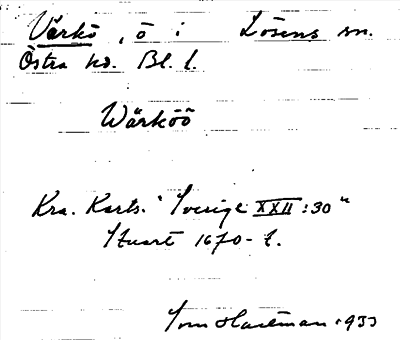 Värkö, ö i Lösens sn.
Östra hd. Bl. l.
Wärköö
Kra. Karts. "Sverige XXII:30"
Stuart 1670-t.
Tom Hartman 1933